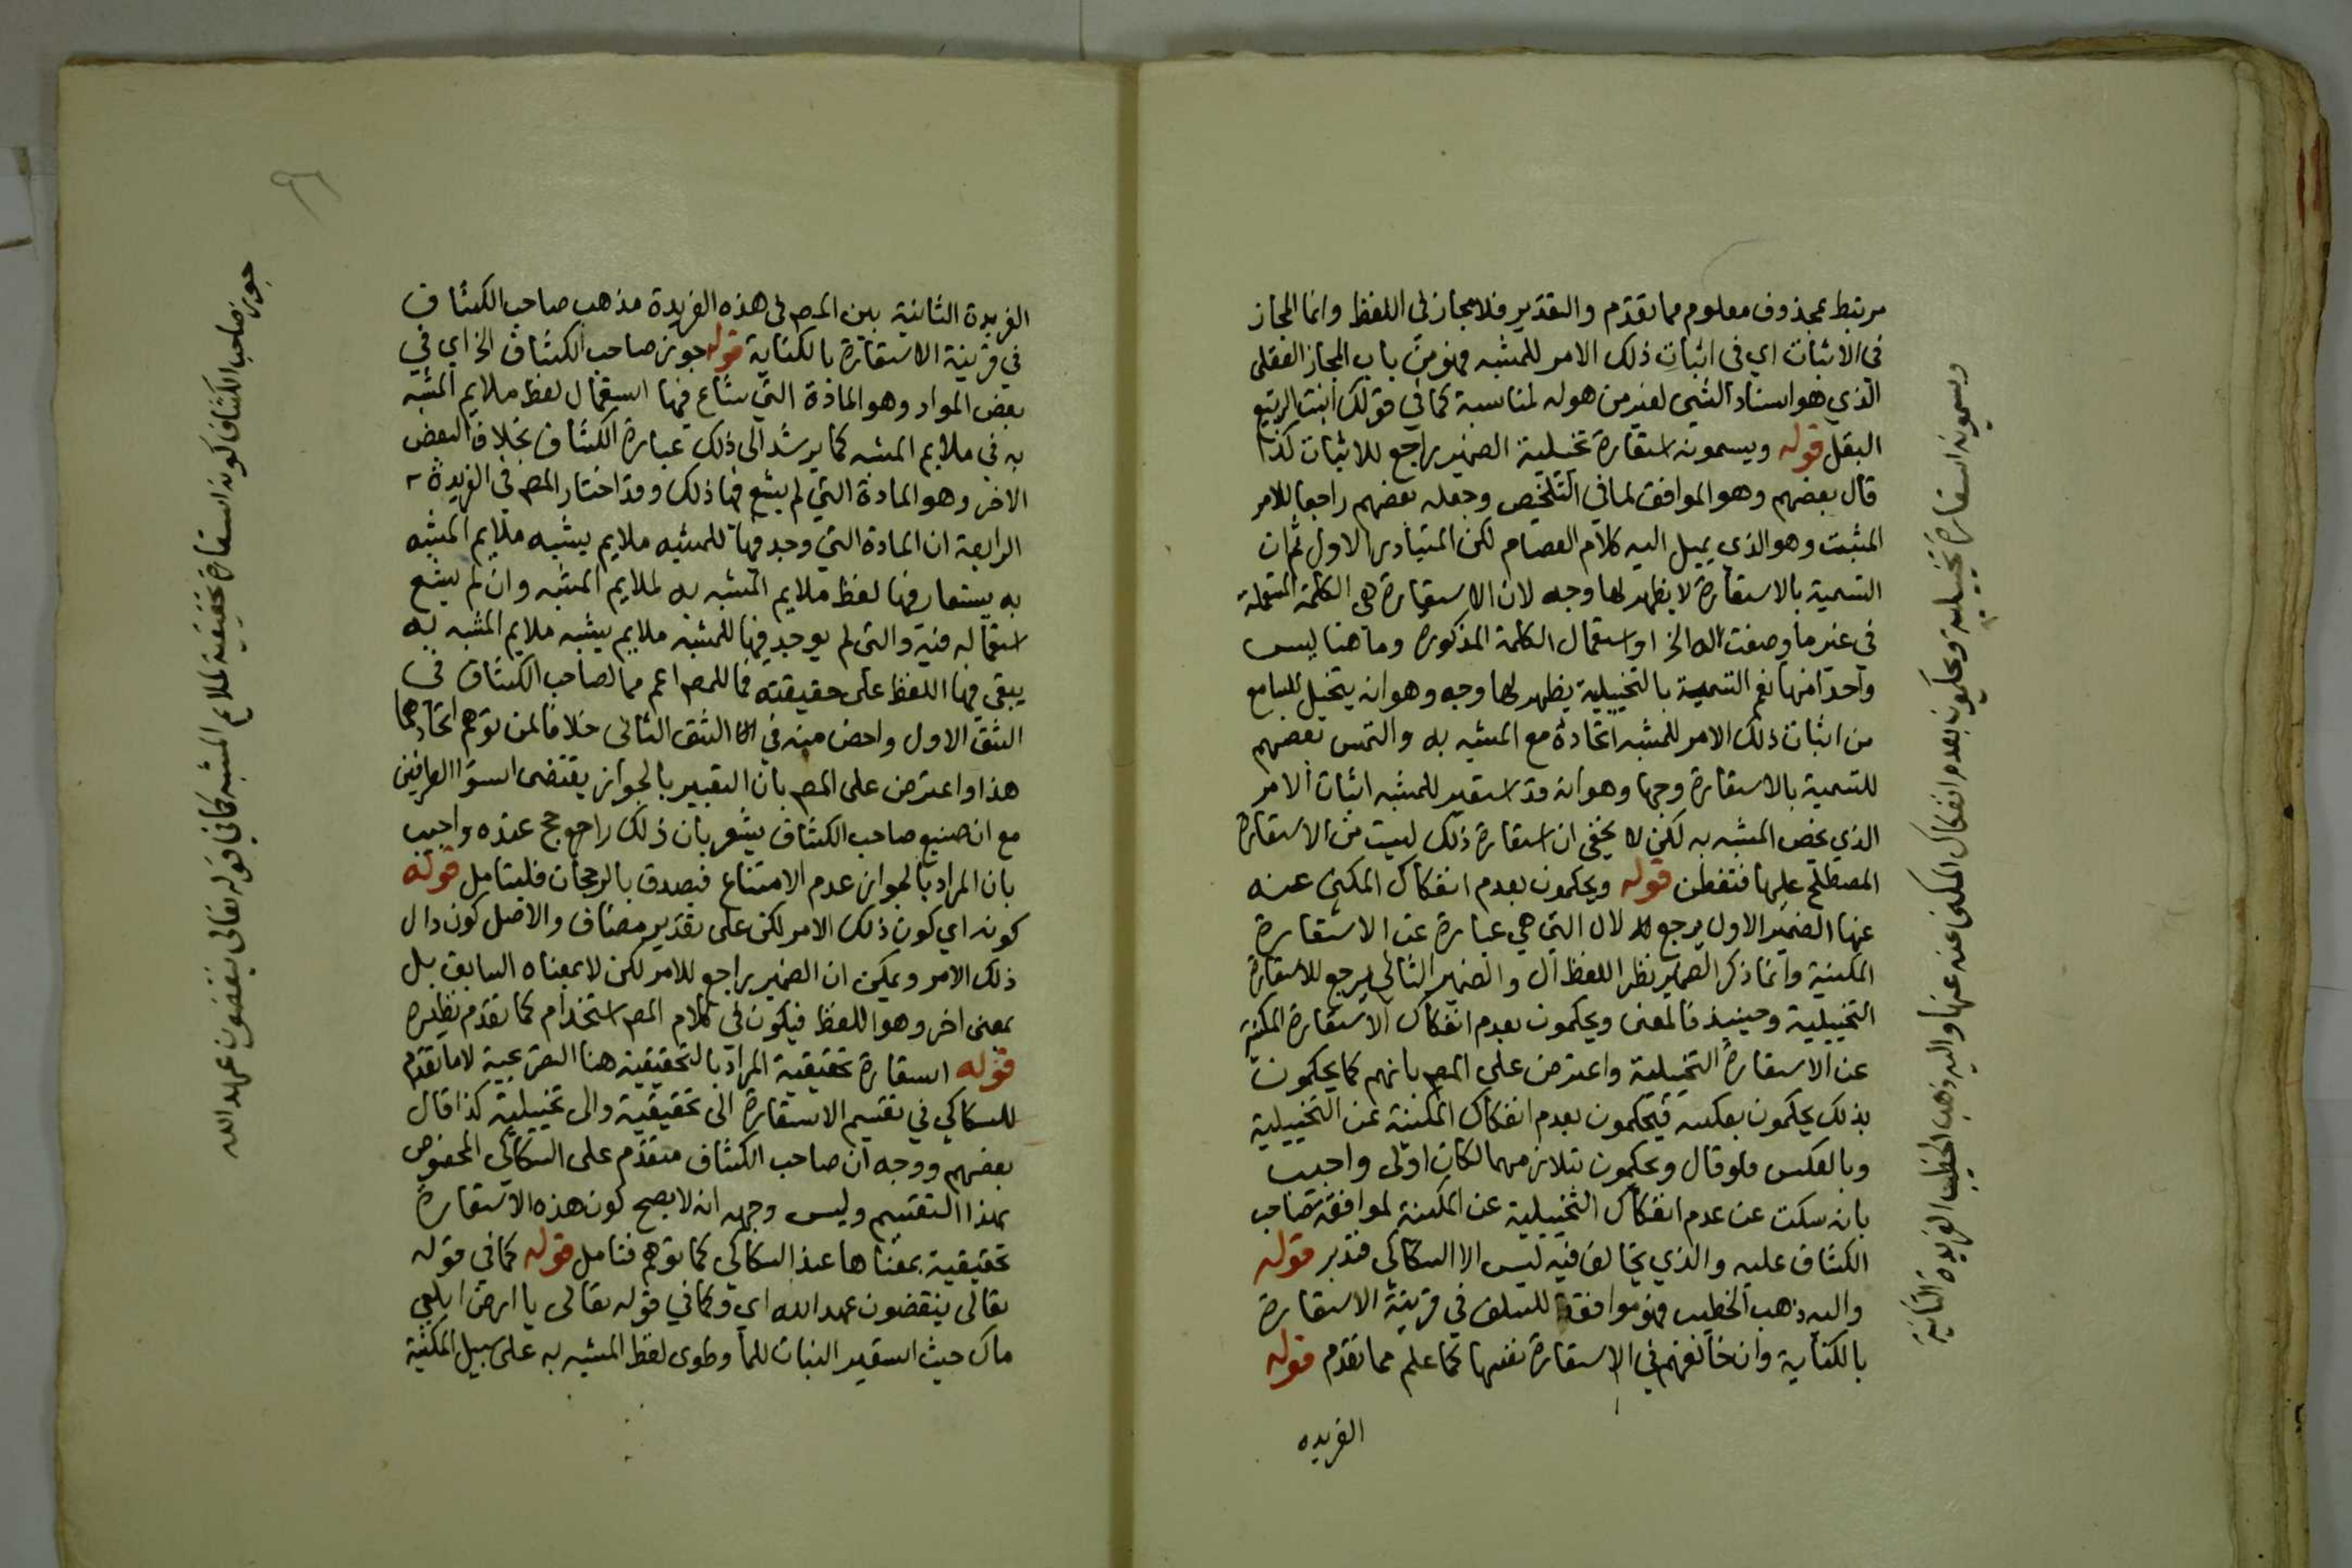 مرتبط بمحذوف معلوم مما تقدم والتقدير فلا مجاز في اللفظ وانما المجاز
في الاثبات اي في اثبات ذلك الامر للمشبه فهو من باب المجاز العقلي
الذي هو اسناد الشي لغير من هو له لمناسبة كما في قولك انبت الربيع
البقل قوله ويسمونه استعارة تخييلية الضمير راجع للاثبات كذا
قال بعضهم وهو الموافق لما في التلخيص وجعله بعضهم راجعا للامر
المثبت وهو الذي يميل اليه كلام العصام لكن المتبادر الاول ثم ان
التسمية بالاستعارة لا يظهر لها وجه لان الاستعارة هي الكلمة المستعملة
في غير ما وضعت له الخ او استعمال الكلمة المذكورة وما هنا ليس
واحدا منها نعم التسمية بالتخييلية يظهر لها وجه وهو انه يتخيل للسامع
من اثبات ذلك الامر للمشبه اتحاده مع المشبه به والتمس بعضهم
للتسمية بالاستعارة وجها وهو انه قد استعير للمشبه اثبات الامر
الذي يخص المشبه به لكن لا يخفى ان استعارة ذلك ليست من الاستعارة
المصطلح عليها فتفطن قوله ويحكمون بعدم انفكاك المكنى عنه
عنها الضمير الاول يرجع لال التي هي عبارة عن الاستعارة
المكنية وانما ذكر الضمير نظر اللفظ ال والضمير الثاني يرجع للاستعارة
التخييلية وحينيذ فالمعنى ويحكمون بعدم انفكاك الاستعارة المكنية
عن الاستعارة التخييلية واعترض على المص بانهم كما يحكمون
بذلك يحكمون بعكسه فيحكمون بعدم انفكاك المكنية عن التخييلية
وبالعكس فلو قال ويحكمون بتلازمهما لكان اولى واجيب
بانه سكت عن عدم انفكاك التخييلية عن المكنية لموافقة صاحب
الكشاف عليه والذي يخالف فيه ليس الا السكاكي فتدبر قوله
واليه ذهب الخطيب فهو موافق للسلف في قرينة الاستعارة
بالكناية وان خالفهم في الاستعارة نفسها كما علم مما تقدم قوله
الفريده
ويسمونه استعارة تخييلية ويحكمون بعدم انفكاك المكنى عنه عنها واليه ذهب الخطيب الفريدة الثانية
الفريدة الثانية بين المص في هذه الفريدة مذهب صاحب الكشاف
في قرينة الاستعارة بالكناية قوله جوز صاحب الكشاف الخ اي في
بعض المواد وهو المادة التي شاع فيها استعمال لفظ ملايم المشبه
به في ملايم المشبه كما يرشد الى ذلك عبارة الكشاف بخلاف البعض
الاخر وهو المادة التي لم يشع فيها ذلك وقد اختار المص في الفريدة
الرابعة ان المادة التي وجد فيها للمشبه ملايم يشبه ملايم المشبه
به يستعار فيها لفظ ملايم المشبه به لملايم المشبه وان لم يشع
استعماله فيه والتي لم يوجد فيها للمشبه ملايم يشبه ملايم المشبه به
يبقى فيها اللفظ على حقيقته فما للمص اعم مما لصاحب الكشاف في
الشق الاول واخص منه في الشق الثاني خلافا لمن توهم اتحادهما
هذا واعترض على المص بان التعبير بالجواز يقتضى استوا الطرفين
مع ان صنيع صاحب الكشاف يشعر بان ذلك راجح عنده واجيب
بان المراد بالجواز عدم الامتناع فيصدق بالرجحان فليتامل قوله
كونه اي كون ذلك الامر لكن على تقدير مضاف والاصل كون دال
ذلك الامر ويمكن ان الضمير راجع للامر لكن لا بمعناه السابق بل
بمعنى اخر وهو اللفظ فيكون في كلام المص استخدام كما تقدم نظيره
قوله استعارة تحقيقية المراد بالتحقيقية هنا التصريحية لا ما تقدم
للسكاكي في تقسيم الاستعارة الى تحقيقية والى تخييلية كذا قال
بعضهم ووجه ان صاحب الكشاف متقدم على السكاكي المخصوص
بهذا التقسيم وليس وجهه انه لا يصح كون هذه الاستعارة
تحقيقية بمعناها عند السكاكي كما توهم فتامل قوله كما في قوله
تعالى ينقضون عهد الله اي وكما في قوله تعالى يا ارض ابلعي
ماك حيث استعير النبات للما وطوى لفظ المشبه به على سبيل المكنية
جوز صاحب الكشاف كونه استعارة تحقيقية لملايم المشبه كما في قوله تعالى ينقضون عهد الله